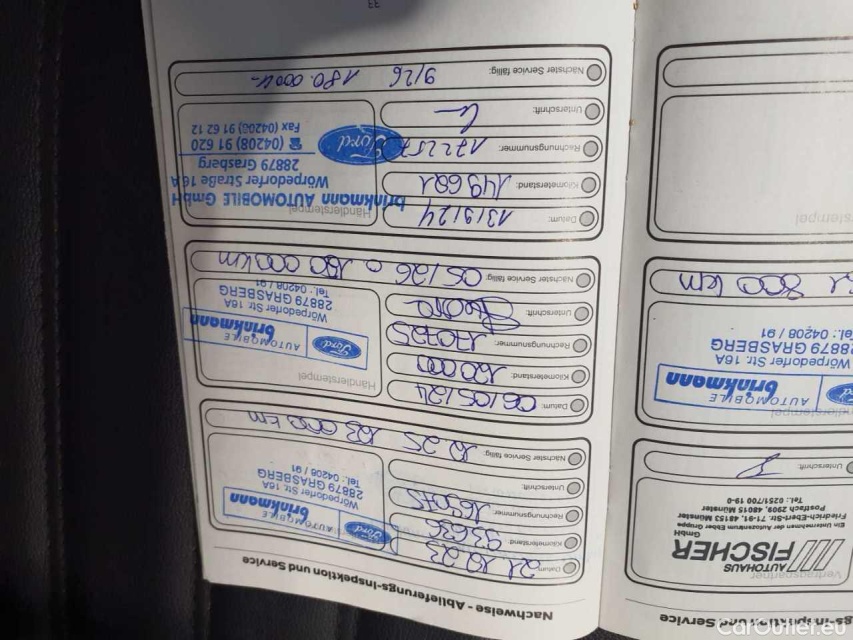 Nachweise - Ablieferungs-Inspektion und Service
Datum: 21.10.23
Kilometerstand: 93636
Rechnungsnummer: 169075
Unterschrift:
Nächster Service fällig: 10.25 123 000 km
Ford
AUTOMOBILE
brinkmann
Wörpedorfer Str. 16A
28879 GRASBERG
Tel.: 04208 / 91
Datum: 06/05/24
Kilometerstand: 120000
Rechnungsnummer: 170725
Unterschrift:
Nächster Service fällig: 05/26 o 150 000 km
Händlerstempel
Ford
AUTOMOBILE
brinkmann
Wörpedorfer Str. 16A
28879 GRASBERG
Tel.: 04208 / 91
Datum: 13/9/24
Kilometerstand: 149681
Rechnungsnummer:
Unterschrift:
Nächster Service fällig: 9/26 180.000
Händlerstempel
brinkmann AUTOMOBILE GmbH
Wörpedorfer Straße 16A
28879 Grasberg
☎ (04208) 91 620
Fax (04208) 91 62 12
Ford
33
gs-Inspektion und Service
Vertragspartner
AUTOHAUS
FISCHER
GmbH
Ein Unternehmen der Autozentrum Ebber Gruppe
Friedrich-Ebert-Str. 71-91, 48153 Münster
Postfach 2909, 48015 Münster
Tel.: 0251/700 19-0
Unterschrift
Ford
AUTOMOBILE
brinkmann
Wörpedorfer Str. 16A
28879 GRASBERG
Tel.: 04208 / 91
800 km
CarOutlet.eu